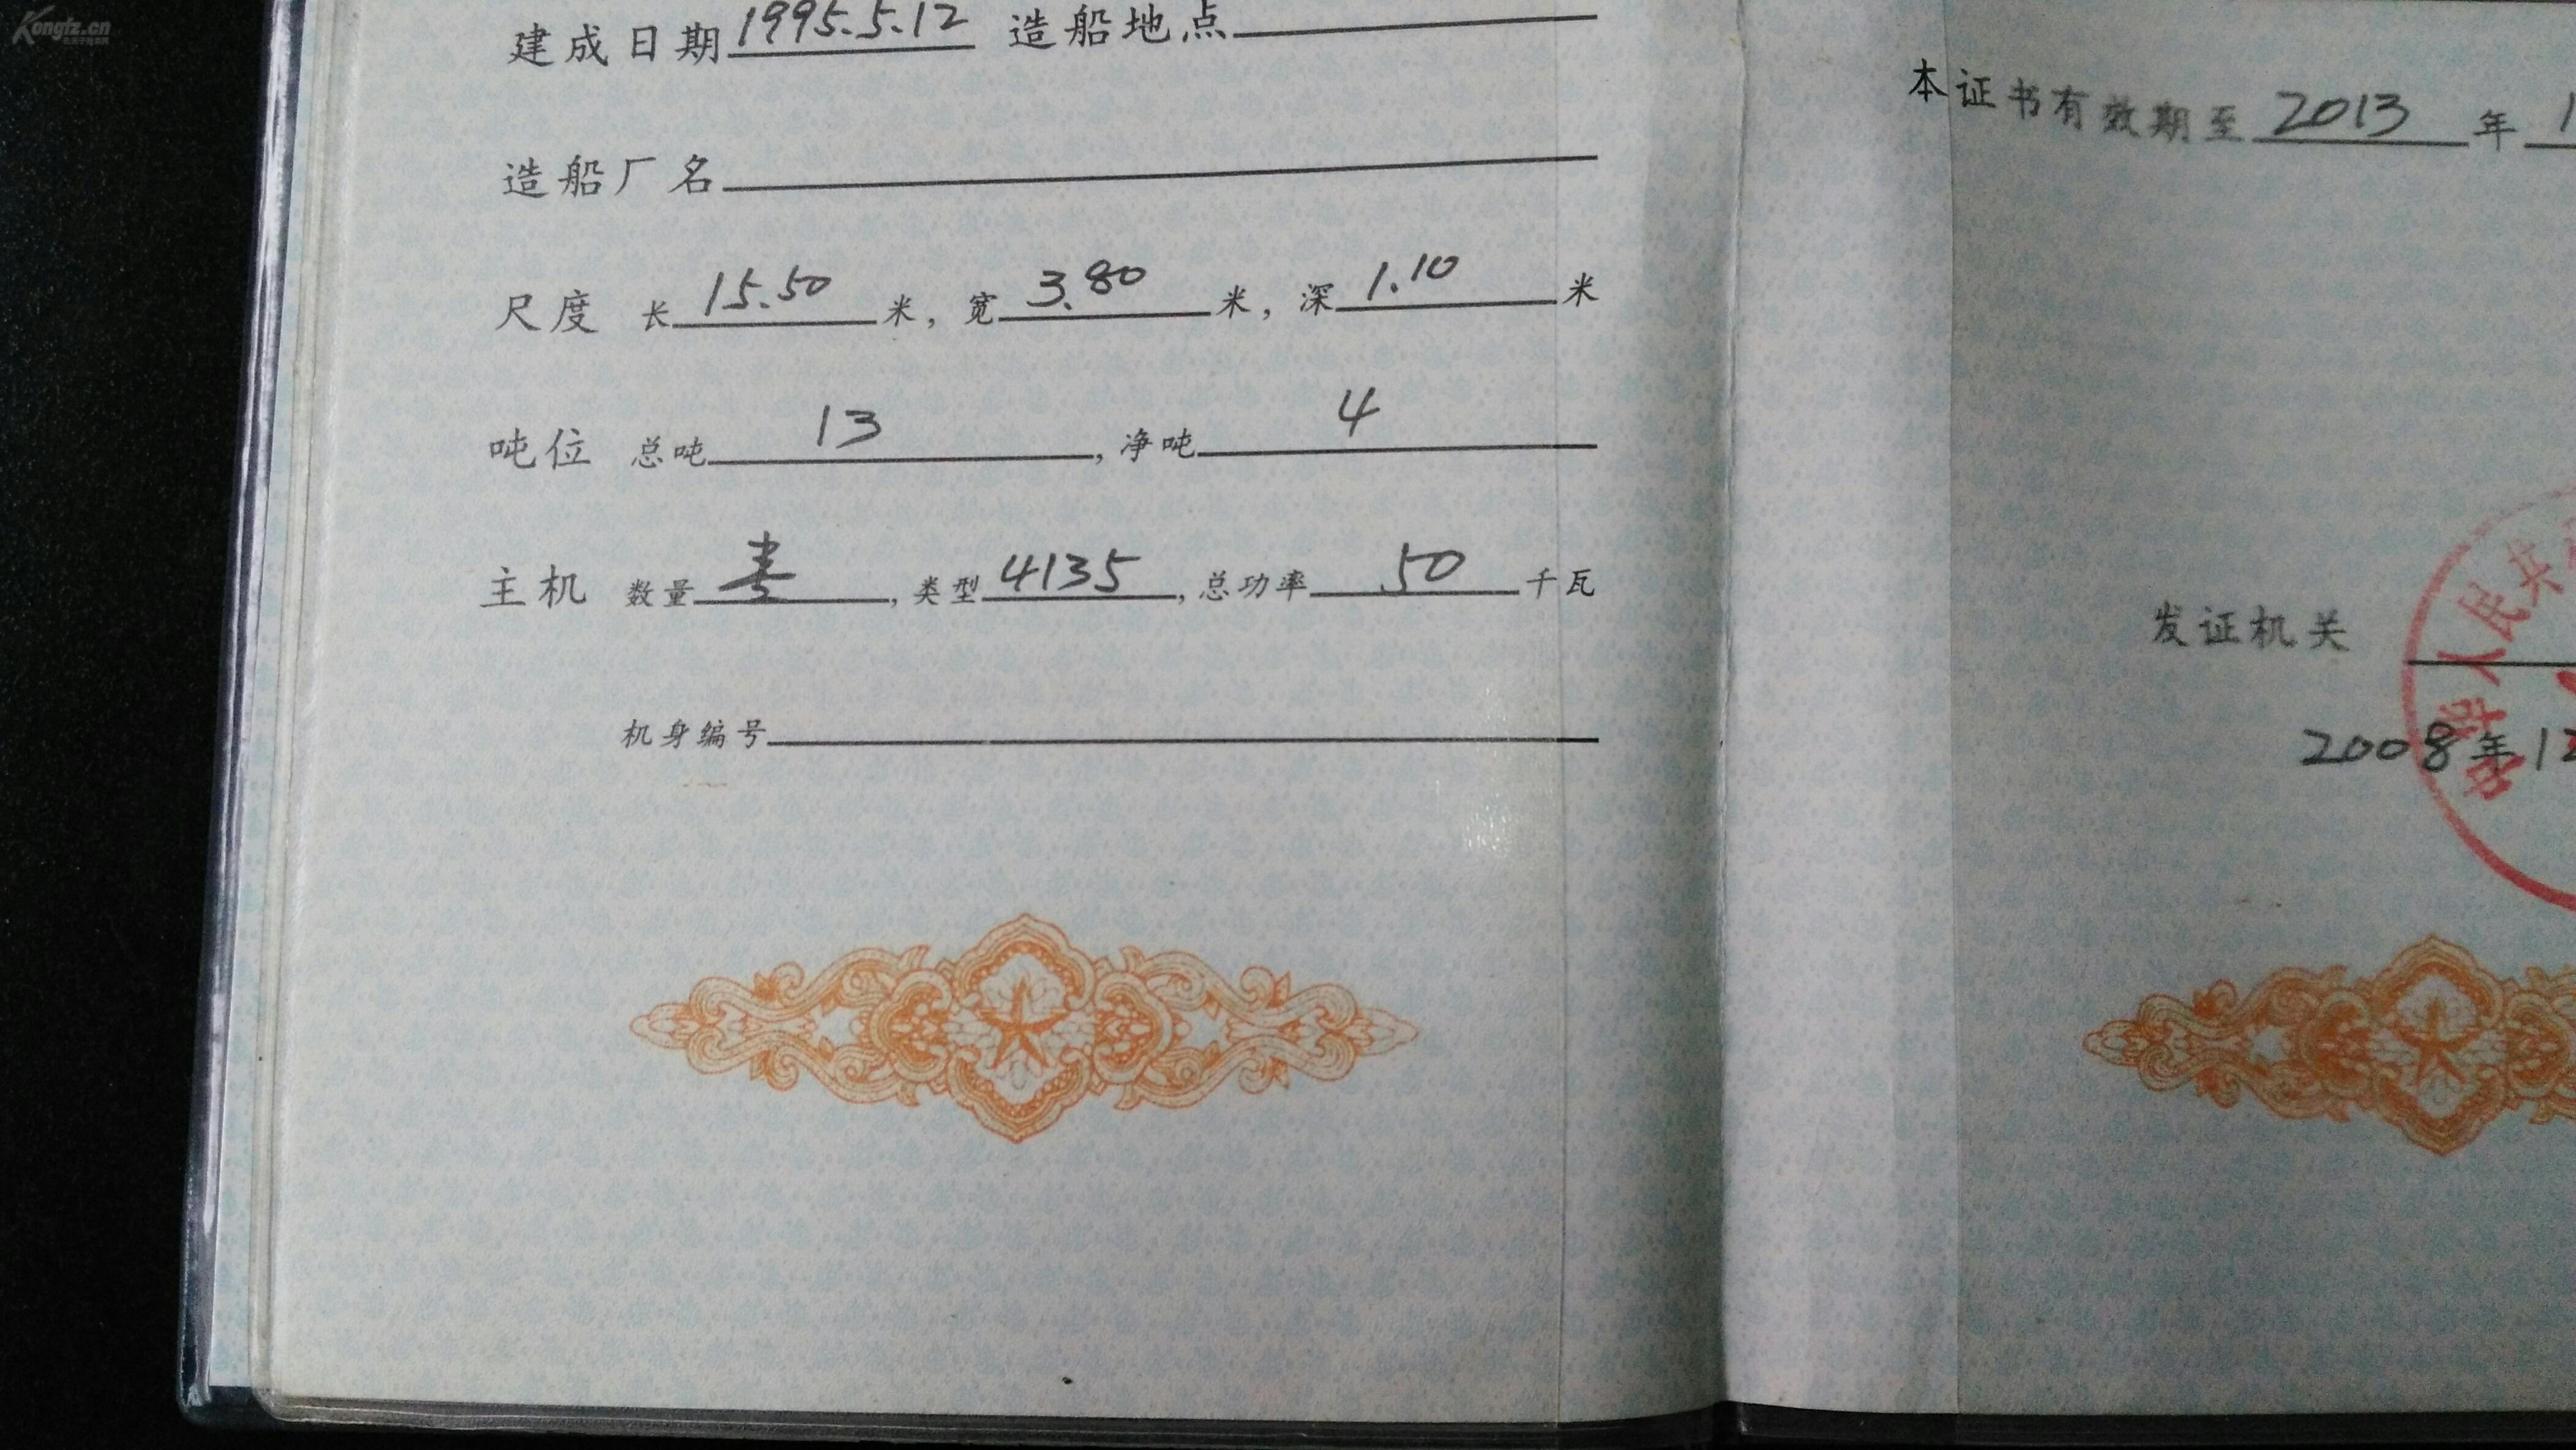 Kongfz.cn
建成日期 1995.5.12 造船地点
造船厂名
尺度 长 15.50 米, 宽 3.80 米, 深 1.10 米
吨位 总吨 13 , 净吨 4
主机 数量 , 类型 4135 , 总功率 50 千瓦
机身编号
本证书有效期至 2013 年 1
发证机关
2008年12
中华人民共